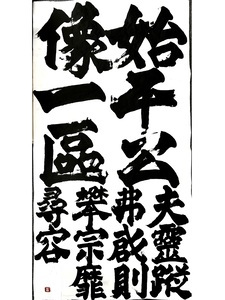 始平公
像一區
夫靈蹤
弗啟則
攀宗靡
尋容